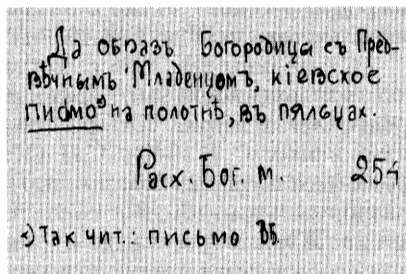 Да образъ Богородицы съ Пред-
вѣчнымъ Младенцомъ, кіевское
писмо на полотнѣ, въ пялцах.
Расх. Бог. м. 254
Так чит.: письмо